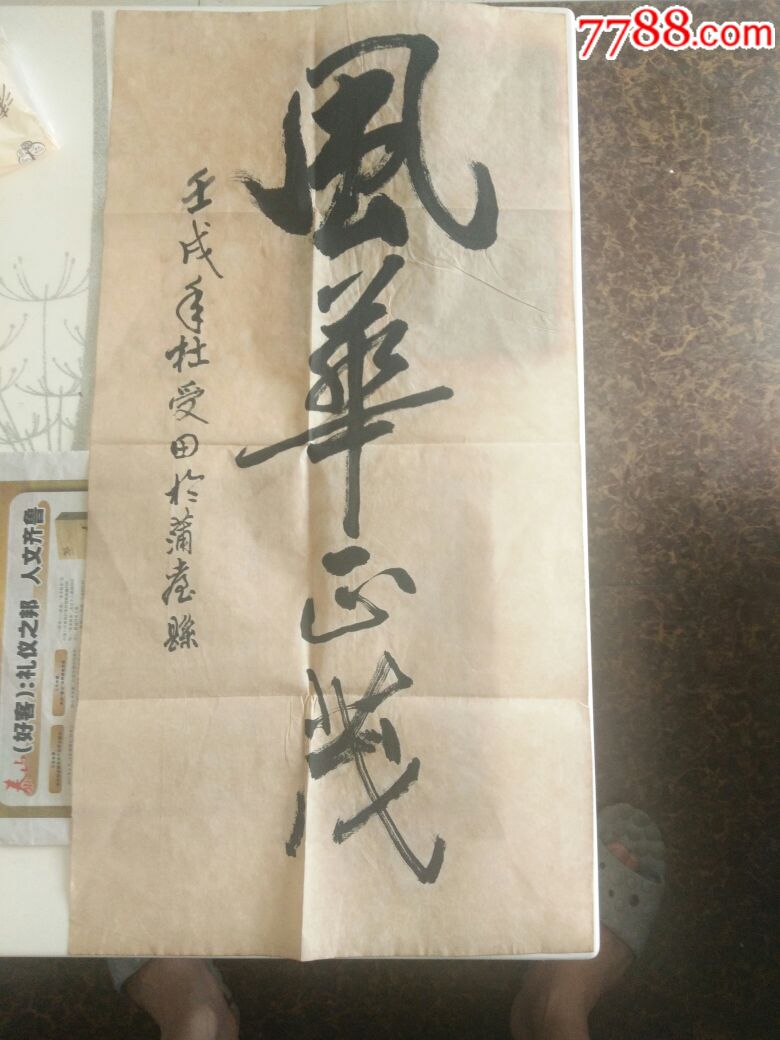 7788.com
風華正茂
壬戌年杜受田於蒲臺縣
泰山(好客):礼仪之邦 人文齐鲁